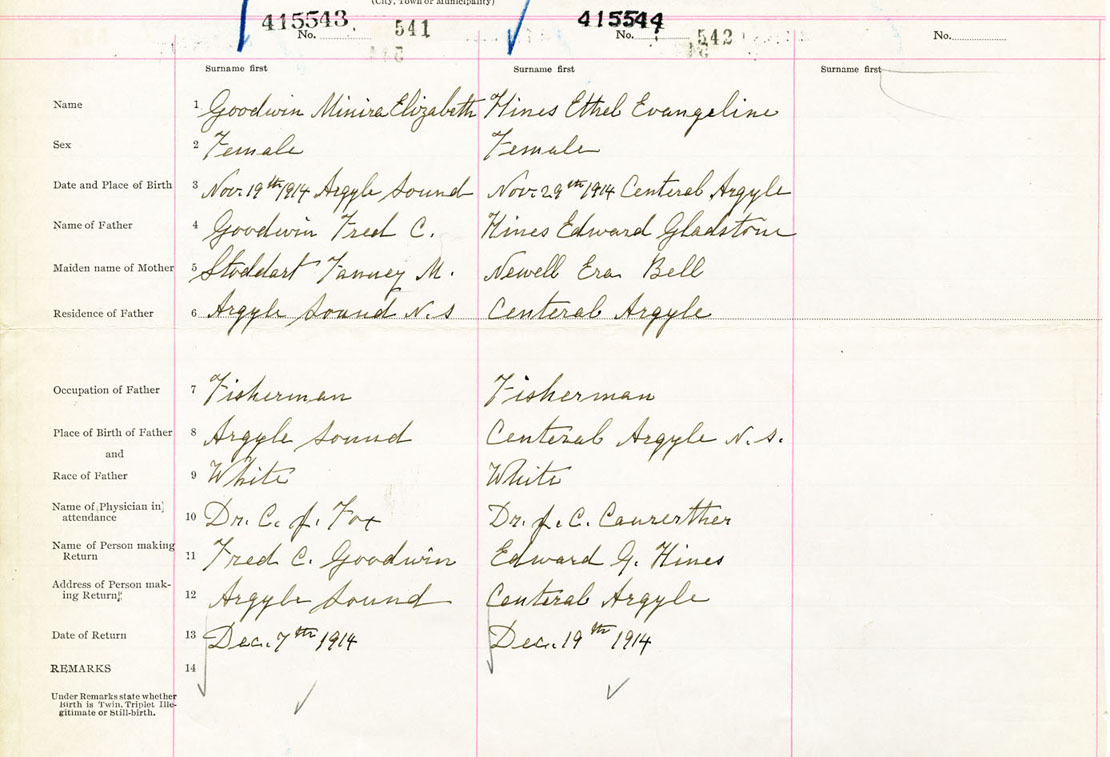 (City, Town or Municipality)
415543 No. 541 415544 No. 542 No.
Surname first Surname first Surname first
Name 1 Goodwin Minira Elizabeth Hines Ethel Evangeline
Sex 2 Female Female
Date and Place of Birth 3 Nov. 19th 1914 Argyle Sound Nov. 29th 1914 Centeral Argyle
Name of Father 4 Goodwin Fred C. Hines Edward Gladstone
Maiden name of Mother 5 Stoddart Fanney M. Newell Era Bell
Residence of Father 6 Argyle Sound N.S Centeral Argyle
Occupation of Father 7 Fisherman Fisherman
Place of Birth of Father 8 Argyle Sound Centeral Argyle N.S.
and
Race of Father 9 White White
Name of Physician in
attendance 10 Dr. C. J. Fox Dr. J. C.
Name of Person making
Return 11 Fred C. Goodwin Edward G. Hines
Address of Person mak-
ing Return 12 Argyle Sound Centeral Argyle
Date of Return 13 Dec. 7th 1914 Dec. 19th 1914
REMARKS 14
Under Remarks state whether
Birth is Twin, Triplet Ille-
gitimate or Still-birth.